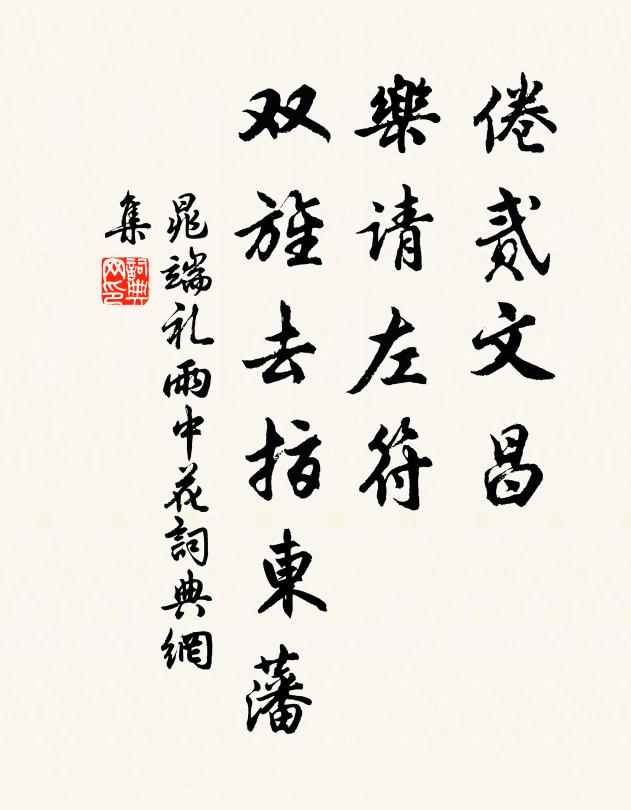 倦贰文昌
樂请左符
双旌去指東藩
晁端礼雨中花詞典網
集
詞典
网印